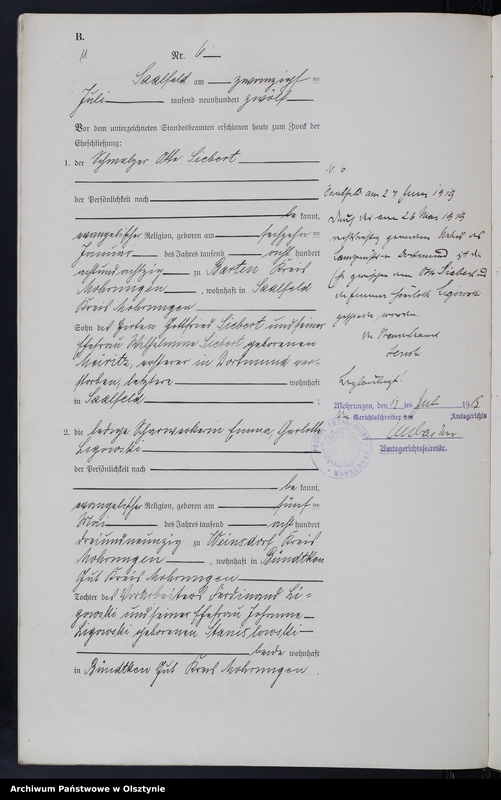 B.
Nr. 6
Saalfeld am zwanzigsten
Juli tausend neunhundert zwölf
Vor dem unterzeichneten Standesbeamten erschienen heute zum Zweck der
Eheschließung:
1. der Schmelzer Otto Siebert
der Persönlichkeit nach
be kannt,
evangelischer Religion, geboren am sechzehn ten
Januar des Jahres tausend acht hundert
achtundachtzig zu Barten Kreis
Mohrungen, wohnhaft in Saalfeld
Kreis Mohrungen
Sohn des Hirten Gottfried Siebert und seiner
Ehefrau Wilhelmine Siebert geborenen
ersterer in Dortmund ver-
storben, letztere wohnhaft
in Saalfeld ;
2. die ledige Scharwerkerin Emma, Charlotte
Ligowski
der Persönlichkeit nach
be kannt,
evangelischer Religion, geboren am fünf ten
Mai des Jahres tausend acht hundert
dreiundneunzig zu Weinsdorf, Kreis
Mohrungen, wohnhaft in Bündtken
Gut Kreis Mohrungen
Tochter des Vorarbeiters Ferdinand Li-
gowski und seiner Ehefrau Johanne
Ligowski geborenen Stanislowski
beide wohnhaft
in Bündtken Gut Kreis Mohrungen.
Saalfeld am 27 Juni 1919
Durch das am 26 Mai 1919
Landgerichts in Dortmund ist die
Ehe zwischen dem Otto Siebert und
der Emma Charlotte Ligowski
geschieden worden.
Der Standesbeamte
Beglaubigt.
Mohrungen, den 11 ten Juli 1919
Der Gerichtsschreiber des Amtsgerichts
Amtsgerichtssekretär.
Archiwum Państwowe w Olsztynie